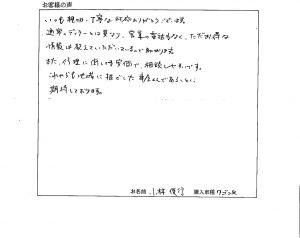 お客様の声
いつも親切、丁寧な対応ありがとうございます。
通常のディーラーとは異なり、営業の電話もなく、ただお得な
情報は教えていただいているので助かります
また、修理に関しても安価で、相談しやすいです。
これからも地域に根ざした車屋さんであること、
期待しております。
お名前 小林 購入車種 ワゴンR